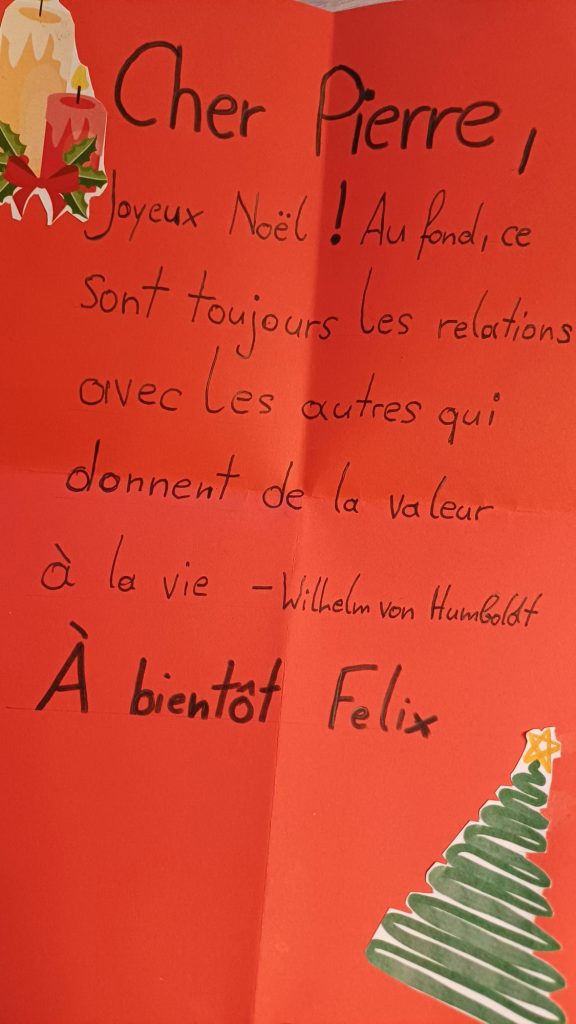 Cher Pierre,
Joyeux Noël ! Au fond, ce
sont toujours les relations
avec les autres qui
donnent de la valeur
à la vie - Wilhelm von Humboldt
À bientôt Felix